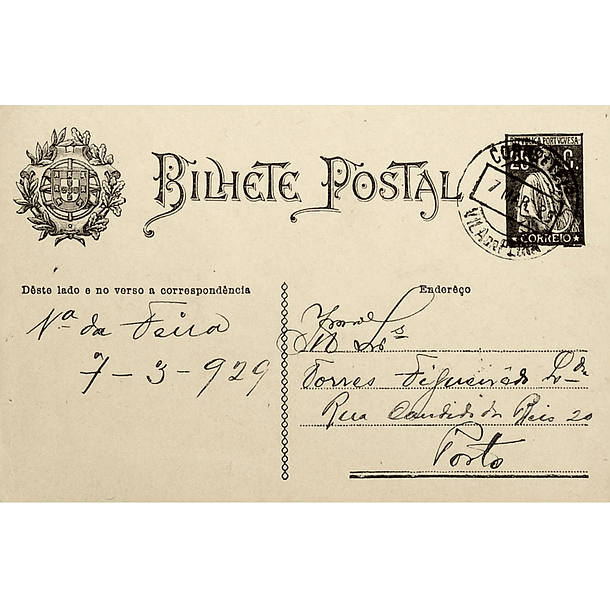 BILHETE POSTAL
REPUBLICA PORTUGUESA
25 C.
CORREIO
CORREIO
7 MAR 29
VILA DA FEIRA
Dêste lado e no verso a correspondência
Endereço
Vª da Feira
7-3-929
Torres Figueirêdo Lda
Rua Candido dos Reis 20
Porto